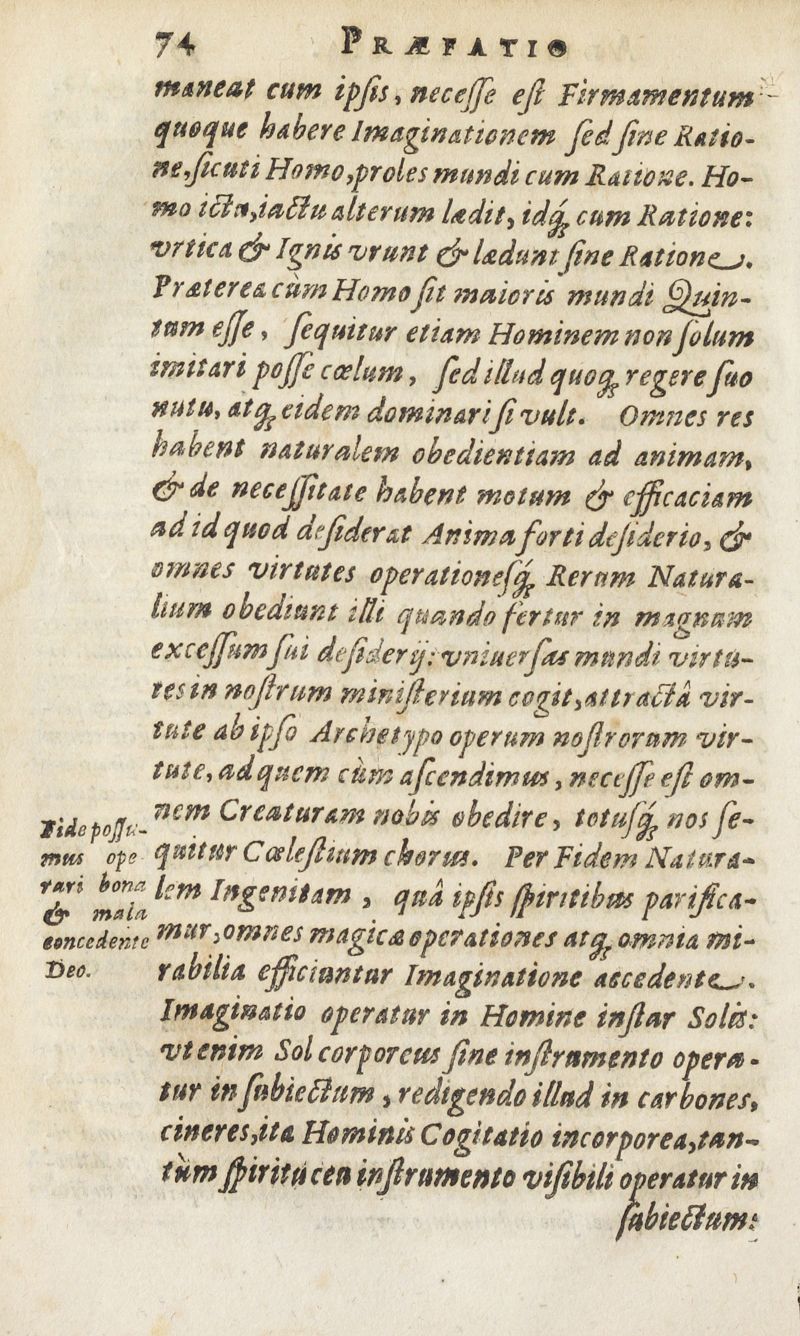 74 PRÆFATIO
maneat cum ipſis, neceſſe eſt Firmamentum
quoque habere Imaginationem ſed ſine Ratio-
ne, ſicuti Homo, proles mundi cum Ratione. Ho-
mo ictu, iactu alterum lædit, idq́ꝫ cum Ratione:
vrtica & Ignis vrunt & lædunt ſine Ratione.
Præterea cùm Homo ſit maioris mundi Quin-
tum eſſe, ſequitur etiam Hominem non ſolum
imitari poſſe cœlum, ſed illud quoqꝫ regere ſuo
nutu, atqꝫ eidem dominari ſi vult. Omnes res
habent naturalem obedientiam ad animam,
& de neceſſitate habent motum & efficaciam
ad id quod deſiderat Anima forti deſiderio, &
omnes virtutes operationeſq́ꝫ Rerum Natura-
lium obediunt illi quando fertur in magnum
exceſſum ſui deſiderij: vniuerſas mundi virtu-
tes in noſtrum miniſterium cogit, attractâ vir-
tute ab ipſo Archetypo operum noſtrorum vir-
tute, ad quem cùm aſcendimus, neceſſe eſt om-
nem Creaturam nobis obedire, totuſq́ꝫ nos ſe-
quitur Cœleſtium chorus. Per Fidem Natura-
lem Ingenitam, quâ ipſis ſpiritibus parifica-
mur, omnes magicæ operationes atqꝫ omnia mi-
rabilia efficiuntur Imaginatione accedente.
Imaginatio operatur in Homine inſtar Solis:
vt enim Sol corporeus ſine inſtrumento opera-
tur in ſubiectum, redigendo illud in carbones,
cineres, ita Hominis Cogitatio incorporea, tan-
tùm ſpiritu ceu inſtrumento viſibili operatur in
ſubiectum:
Fide poſſu-
mus ope
rari bona
& mala
concedente
Deo.